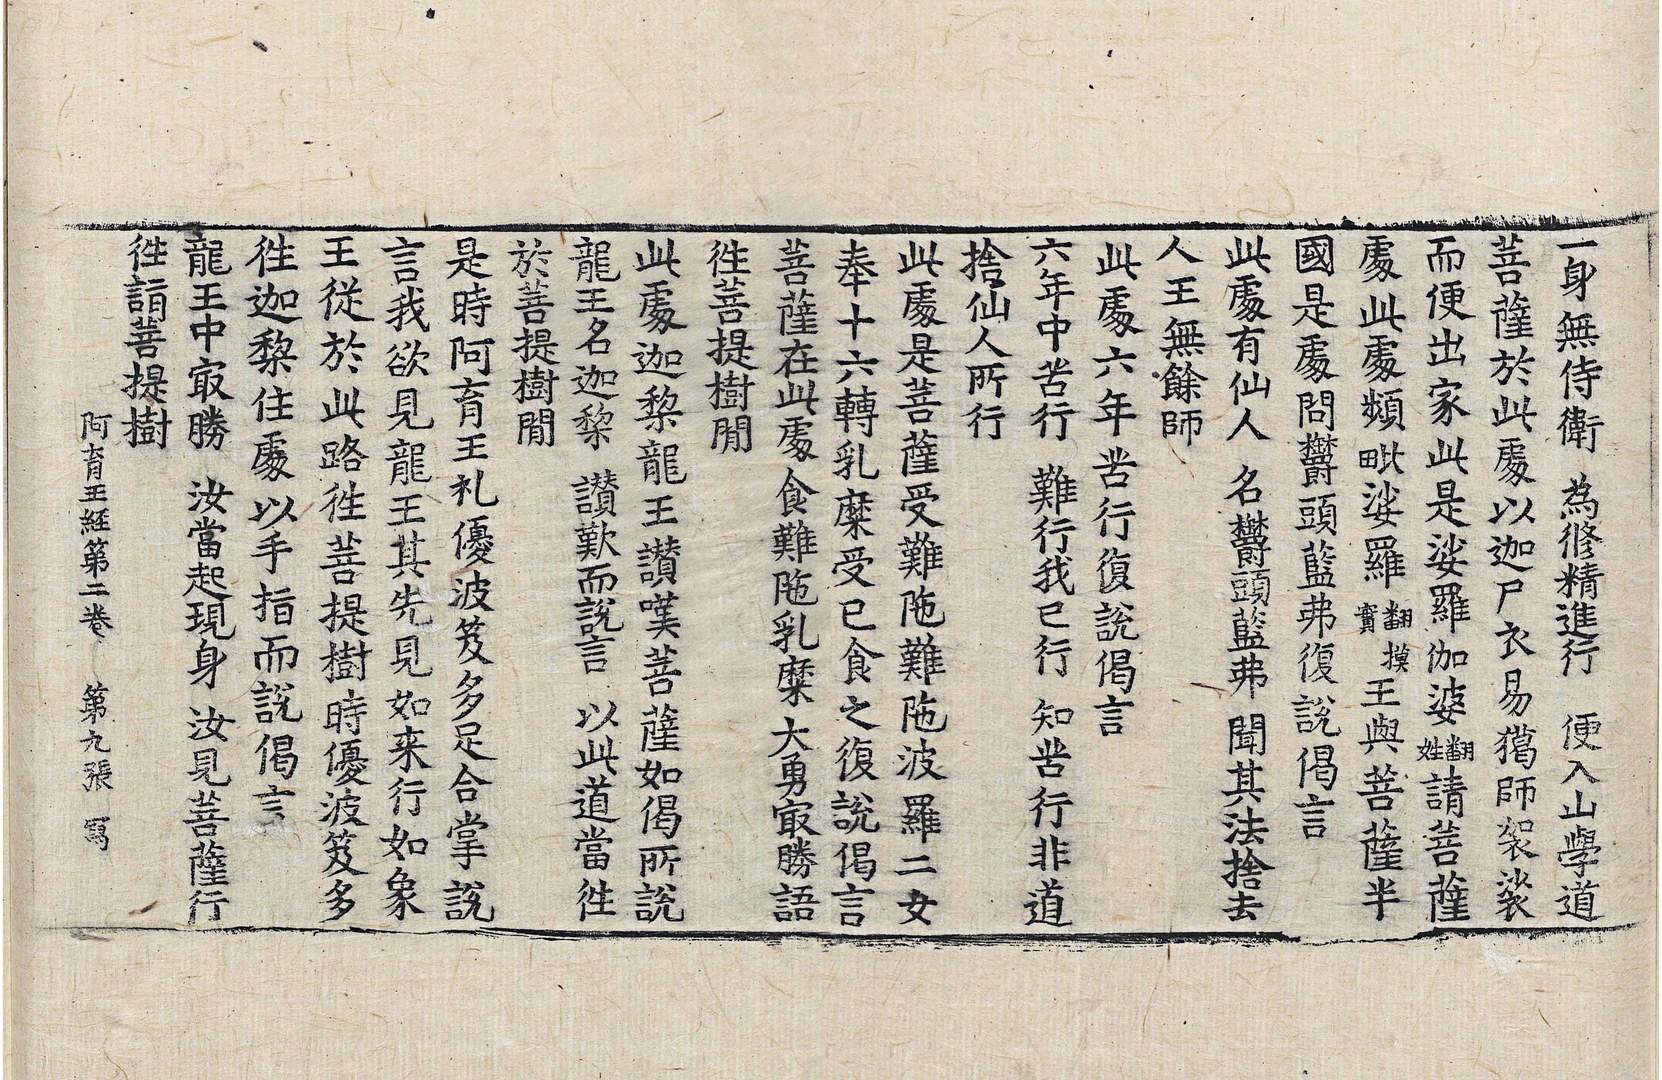 一身無侍衛　為修精進行　便入山學道
菩薩於此處以迦尸衣易獦師袈裟
而便出家此是娑羅伽婆翻姓請菩薩
處此處頻毗娑羅翻摸實王與菩薩半
國是處問欝頭藍弗復說偈言
此處有仙人　名欝頭藍弗　聞其法捨去
人王無餘師
此處六年苦行復說偈言
六年中苦行　難行我已行　知苦行非道
捨仙人所行
此處是菩薩受難陁難陁波羅二女
奉十六轉乳糜受已食之復說偈言
菩薩在此處食難陁乳糜大勇㝡勝語
徃菩提樹閒
此處迦梨龍王讃嘆菩薩如偈所說
龍王名迦梨　讃歎而說言　以此道當徃
於菩提樹閒
是時阿育王礼優波笈多足合掌說
言我欲見龍王其先見如来行如象
王從於此路徃菩提樹時優波笈多
徃迦黎住處以手指而說偈言
龍王中㝡勝　汝當起現身　汝見菩薩行
徃詣菩提樹
阿育王經第二卷　第九張　寫